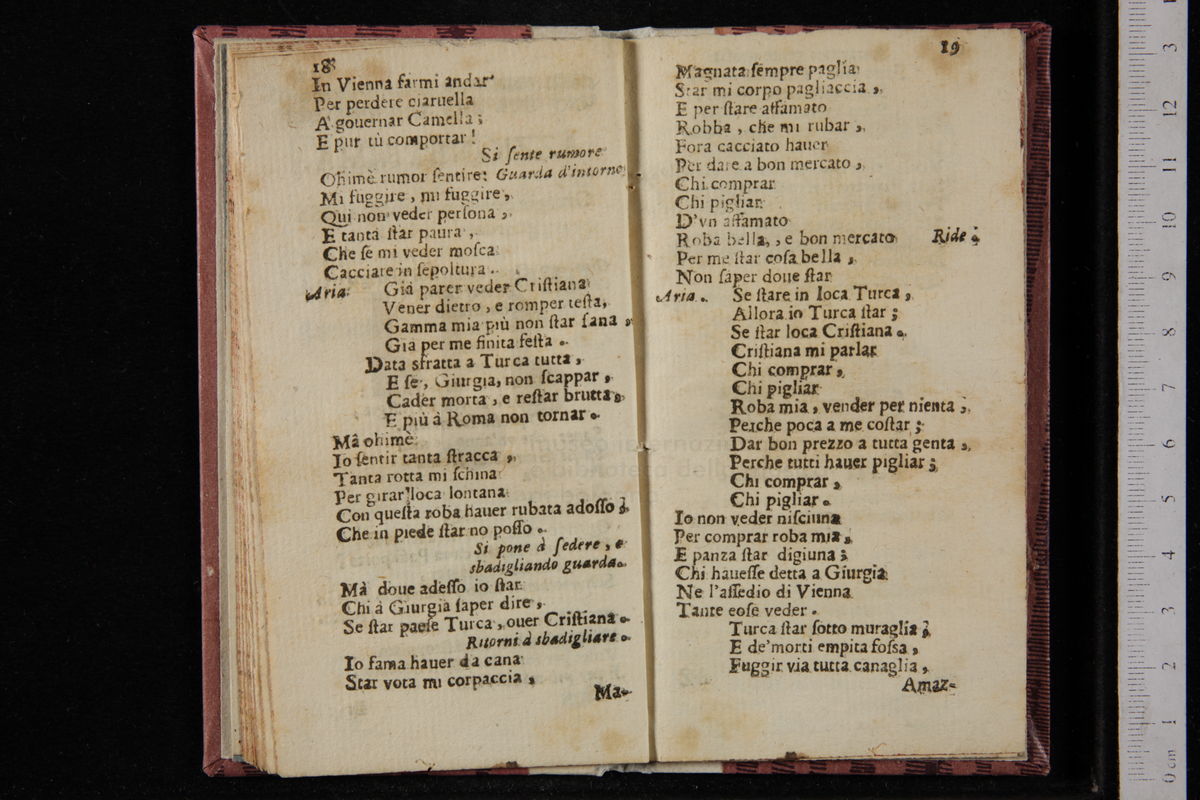 18
In Vienna farmi andar
Per perdere ciaruella
A' gouernar Camella ;
E pur tù comportar !
Si ſente rumore
Ohimè rumor ſentire: Guarda d'intorno
Mi fuggire , mi fuggire ,
Qui non veder perſona ,
E tanta ſtar paura ,
Che ſe mi veder moſca
Cacciare in ſepoltura .
Aria. Già parer veder Criſtiana
Vener dietro , e romper teſta,
Gamma mia più non ſtar ſana ,
Già per me finita feſta .
Data sfratta a Turca tutta ,
E ſe , Giurgia, non ſcappar ,
Cader morta , e reſtar brutta ,
E più à Roma non tornar .
Mà ohimè
Io ſentir tanta ſtracca ,
Tanta rotta mi ſchina
Per girar loca lontana
Con queſta roba hauer rubata adoſſo ;
Che in piede ſtar no poſſo .
Si pone à ſedere , e
sbadigliando guarda .
Mà doue adeſſo io ſtar
Chi à Giurgia ſaper dire ,
Se ſtar paeſe Turca , ouer Criſtiana .
Ritorni à sbadigliare .
Io fama hauer da cana
Star vota mi corpaccia ,
Ma-
19
Magnata ſempre paglia
Star mi corpo pagliaccia ,
E per ſtare affamato
Robba , che mi rubar ,
Fora cacciato hauer
Per dare a bon mercato ,
Chi comprar
Chi pigliar
D'vn affamato
Roba bella, , e bon mercato Ride .
Per me ſtar coſa bella ,
Non ſaper doue ſtar
Aria . Se ſtare in loca Turca ,
Allora io Turca ſtar ;
Se ſtar loca Criſtiana .
Criſtiana mi parlar
Chi comprar ,
Chi pigliar
Roba mia , vender per nienta ,
Perche poca a me coſtar ;
Dar bon prezzo a tutta genta ,
Perche tutti hauer pigliar ;
Chi comprar ,
Chi pigliar .
Io non veder niſciuna
Per comprar roba mia ,
E panza ſtar digiuna ;
Chi haueſſe detta a Giurgia
Ne l'aſſedio di Vienna
Tante eoſe veder .
Turca ſtar ſotto muraglia ;
E de'morti empita foſsa ,
Fuggir via tutta canaglia ,
Amaz-